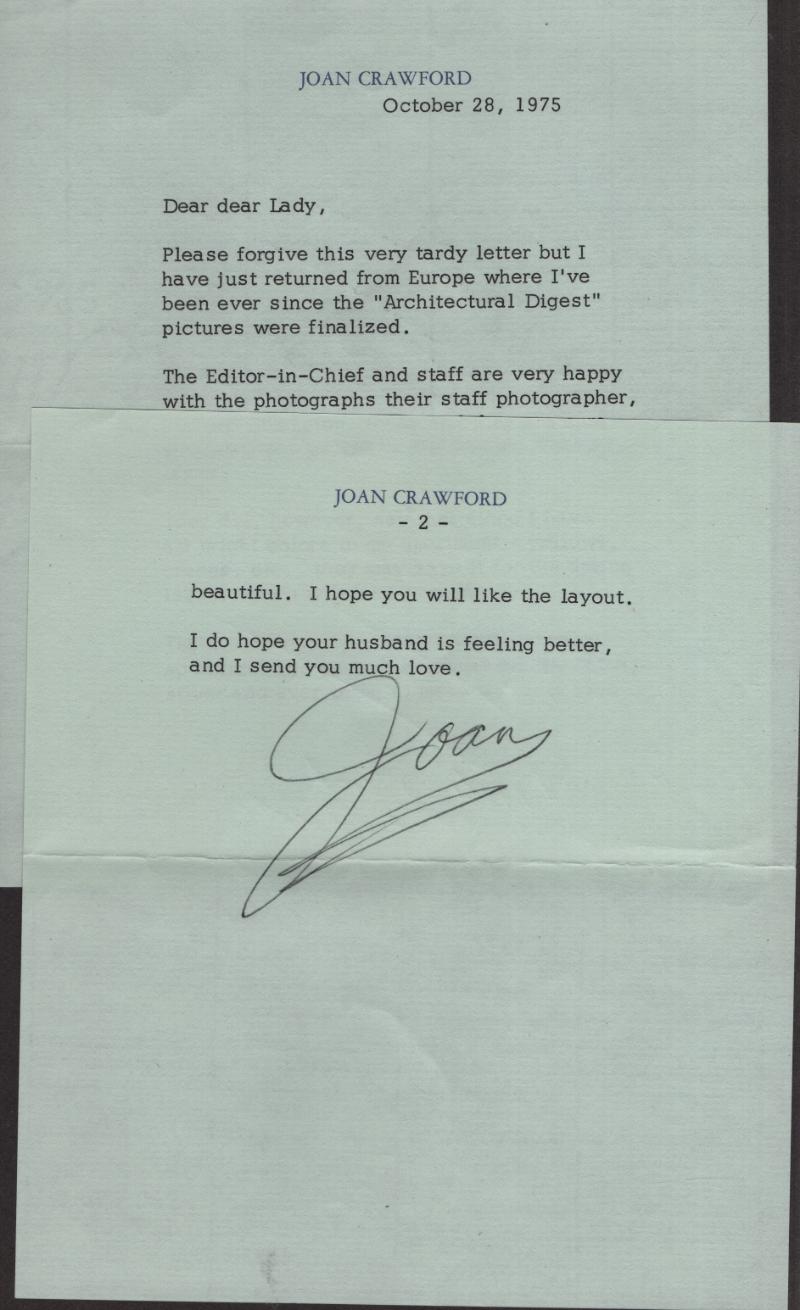 JOAN CRAWFORD
October 28, 1975
Dear dear Lady,
Please forgive this very tardy letter but I
have just returned from Europe where I've
been ever since the "Architectural Digest"
pictures were finalized.
The Editor-in-Chief and staff are very happy
with the photographs their staff photographer,
JOAN CRAWFORD
- 2 -
beautiful. I hope you will like the layout.
I do hope your husband is feeling better,
and I send you much love.
Joan